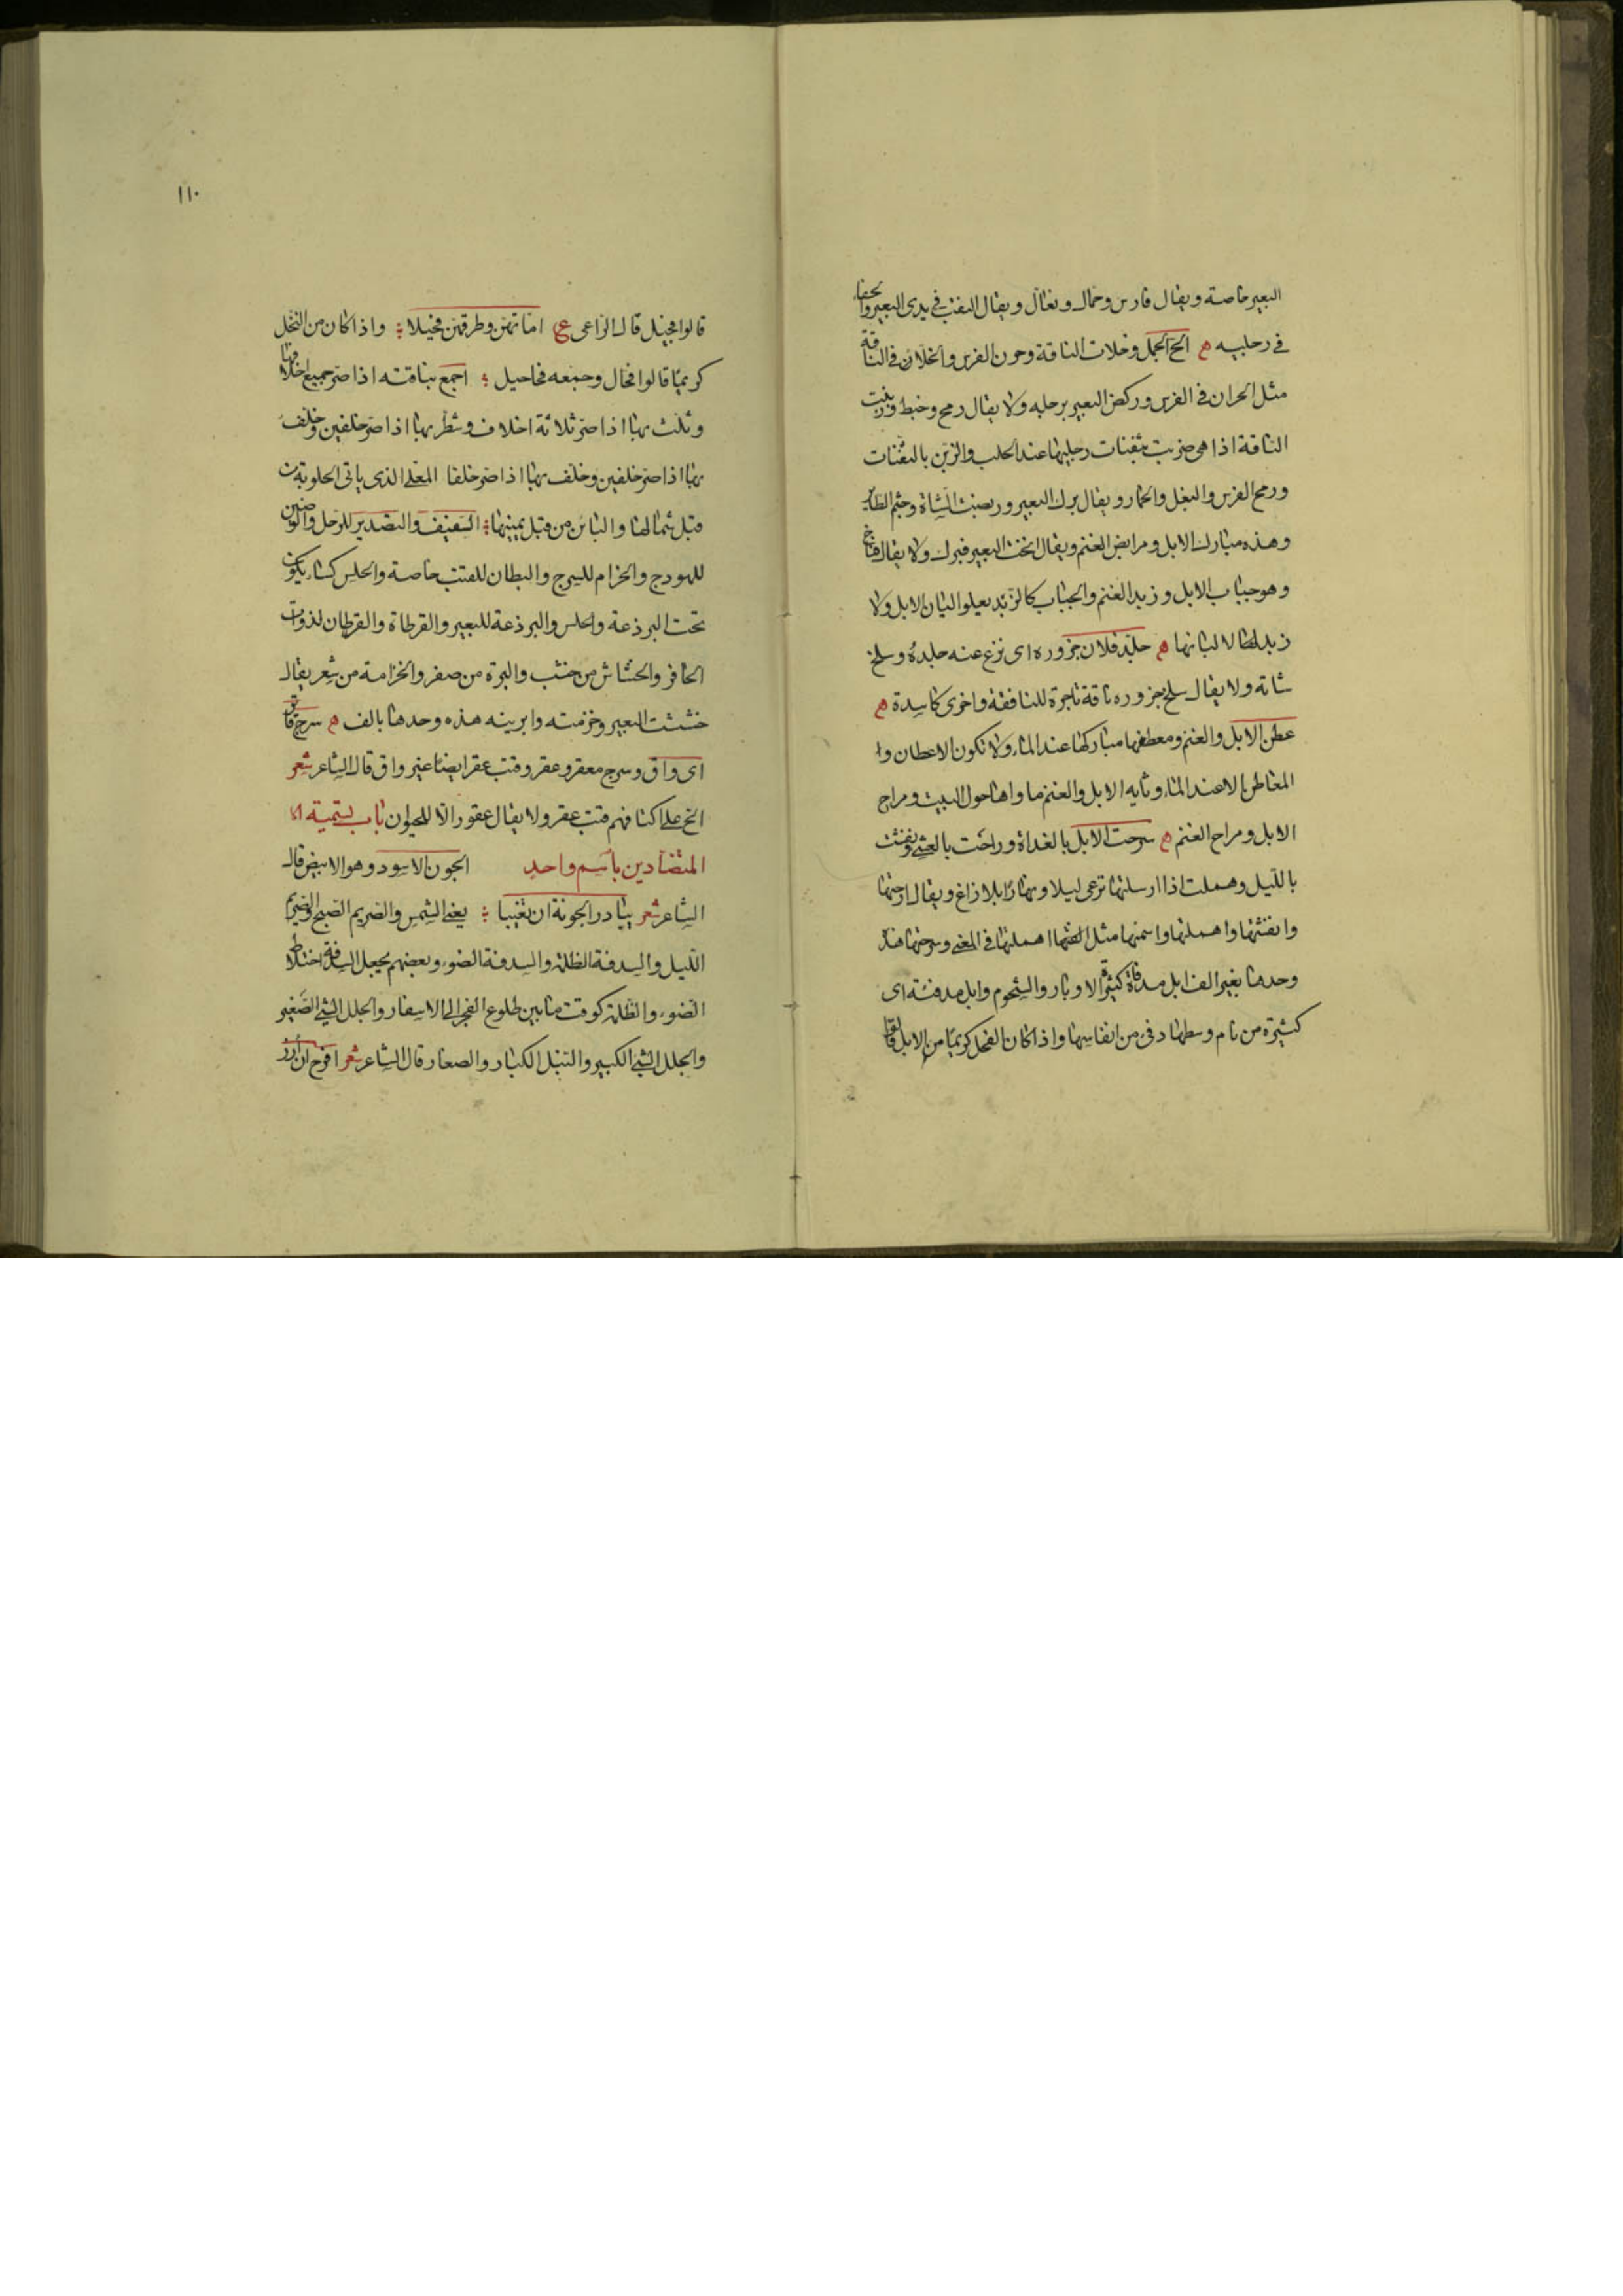 البعير خاصة ويقال فارس وحمال وبغال ويقال النقب في يدى البعير والحفا
في رجليه ۿ الح الجمل وخلات الناقة وحرن الفرس والخلان في الناقة
مثل الحران في الفرس وركض البعير برجله ولا يقال رمح وخبط وزبنت
الناقة اذا هى ضربت بثفنات رجليها عند الحلب والزبن بالثفنات
ورمح الفرس والبغل والحمار ويقال برك البعير وربضت الشاة وجثم الطاير
وهذه مبارك الابل ومرابض الغنم ويقال انخت البعير فبرك ولا يقال فناخ
وهو حباب الابل وزبد الغنم والجباب كالزبد يعلوا البان الابل ولا
زبد لها لا لبانها ۿ جلد فلان جزوره اى نزع عنه جلده وسلخ
شاته ولا يقال سلخ جزوره ناقة تاجرة للنافقة واخرى كاسدة ۿ
عطن الابل والغنم ومعطنها مباركها عند الماء ولا تكون الاعطان وا
المعاطن الا عند الماء وثايه الابل والغنم ماواها حول البيت ومراح
الابل ومراح الغنم ۿ سرحت الابل بالغداة وراحت بالعشى ونفشت
بالليل وهملت اذا ارسلتها ترعى ليلا ونهارا بلا راع ويقال ارحتها
وانفشتها واهملتها واسمتها مثل اهملتها في المعنى وسرحتها هذه
وحدها بغير الف ابل مدفاة كثيرة الاوبار والشحوم وابل مدفئة اى
كثيرة من نام وسطها دفى من انفاسها واذا كان الفحل كريما من الابل قالوا
١١٠
قالوا فحيل قال الراعى ع اماتهن وطرقهن فحيلا ؞ واذا كان من النخل
كريما قالوا فحال وجمعه فحاحيل ؞ اجمع بناقته اذا صر جميع اخلافها
وثلث بها اذا صر ثلاثة اخلاف وشطر بها اذا صر خلفين وخلف
بها اذا صر خلفين وخلف بها اذا صر خلفا المعلى الذى ياتى الحلوبة من
قبل شمالها والبائن من قبل يمينها ؞ السفيف والتصدير للرحل والوضين
للهودج والحزام للسرج والبطان للقتب خاصة والحلس كساء يكون
تحت البرذعة والحلس والبرذعة للبعير والقرطاة والقرطان لذوات
الحافر والخشاش من خشب والبرة من صفر والخزامة من شعر يقال
خششت البعير وخزمته وابريته هذه وحدها بالف ۿ سرج قاتر
اى واق وسرج معقر وعقر وقتب عقر ايضا غير واق قال الشاعر شعر
الخ على اكتافهم قتب عقر ولا يقال عقور الا للحيوان باب تسمية ال
المتضادين باسم واحد الجون الاسود وهو الابيض قال
الشاعر شعر يبادر الجونة ان تغيبا ؞ يعنى الشمس والصريم الصبح والصريم
الليل والسدفة الظلمة والسدفة الضوء وبعضهم يجعل السدفة اختلاط
الضوء والظلمة كوقت ما بين طلوع الفجر الى الاسفار والجلل الشى الصغير
والجلل الشى الكبير والنبل الكبار والصغار قال الشاعر شعر افرح ان ارز